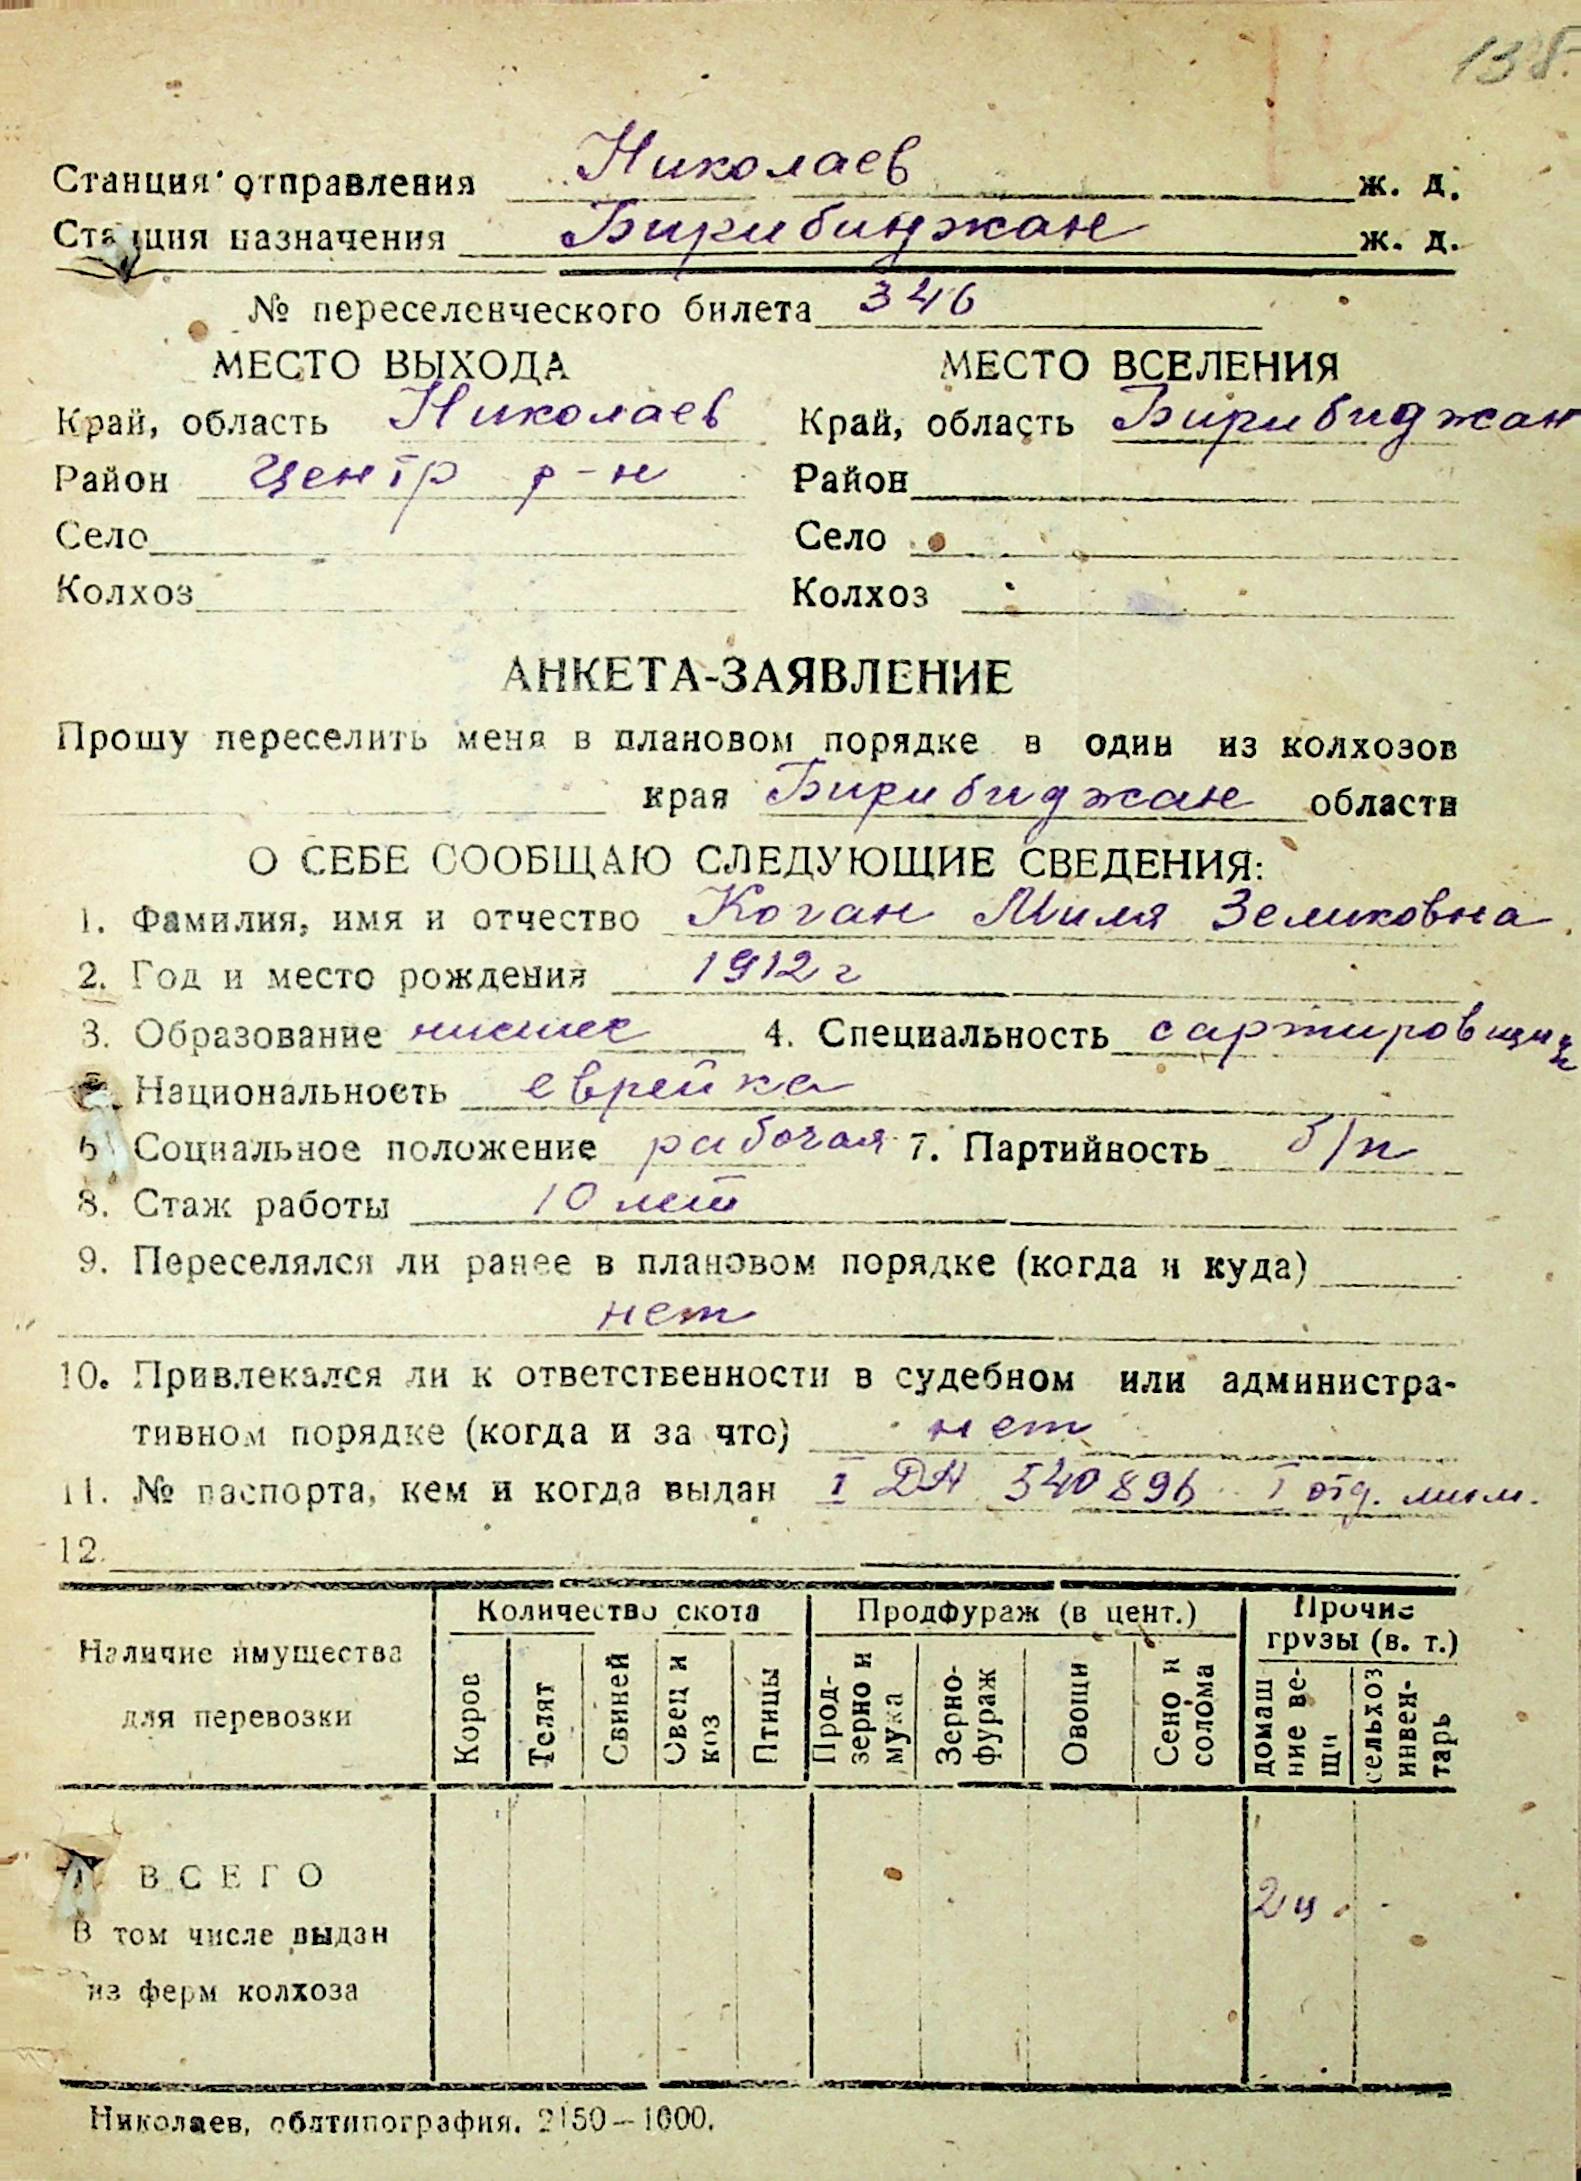 138.
Станция отправления Николаев ж. д.
Станция назначения Биribиджан ж. д.
№ переселенческого билета 346
МЕСТО ВЫХОДА МЕСТО ВСЕЛЕНИЯ
Край, область Николаев Край, область Биробиджан
Район Центр р-н Район
Село Село
Колхоз Колхоз
АНКЕТА-ЗАЯВЛЕНИЕ
Прошу переселить меня в плановом порядке в один из колхозов
края Биробиджан области
О СЕБЕ СООБЩАЮ СЛЕДУЮЩИЕ СВЕДЕНИЯ:
1. Фамилия, имя и отчество Коган Миля Зеликовна
2. Год и место рождения 1912 г
3. Образование низшее 4. Специальность
5. Национальность еврейка
6. Социальное положение рабочая 7. Партийность б/п
8. Стаж работы 10 лет
9. Переселялся ли ранее в плановом порядке (когда и куда)
нет
10. Привлекался ли к ответственности в судебном или администра-
тивном порядке (когда и за что) нет
11. № паспорта, кем и когда выдан I ДА 540896 I отд. мил.
12.
Наличие имущества для перевозки
Количество скота Продфураж (в цент.) Прочие грузы (в. т.)
Коров Телят Свиней Овец и коз Птицы Прод-зерно и мука Зерно-фураж Овощи Сено и солома домашние вещи сельхоз инвен-тарь
ВСЕГО 2 ц.
В том числе выдан
из ферм колхоза
Николаев, облтипография. 2150—1000.